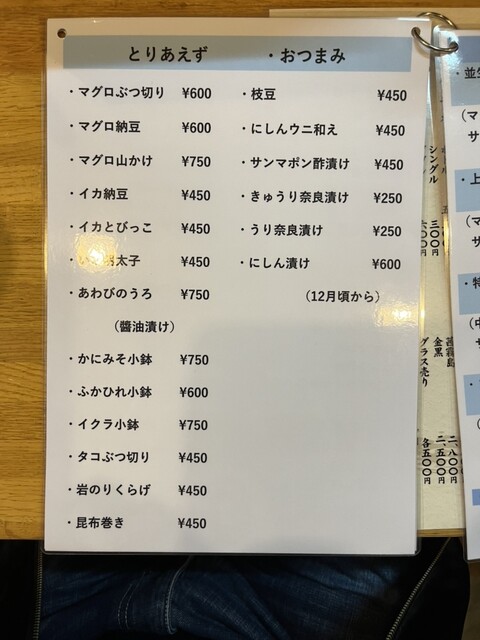 とりあえず ・おつまみ
・マグロぶつ切り ¥600
・マグロ納豆 ¥600
・マグロ山かけ ¥750
・イカ納豆 ¥450
・イカとびっこ ¥450
太子 ¥450
・あわびのうろ ¥750
（醬油漬け）
・かにみそ小鉢 ¥750
・ふかひれ小鉢 ¥600
・イクラ小鉢 ¥750
・タコぶつ切り ¥450
・岩のりくらげ ¥450
・昆布巻き ¥450
・枝豆 ¥450
・にしんウニ和え ¥450
・サンマポン酢漬け ¥450
・きゅうり奈良漬け ¥250
・うり奈良漬け ¥250
・にしん漬け ¥600
（12月頃から）
シングル 三〇〇円
六〇〇円
茜霧島 二、八〇〇円
金黒 二、五〇〇円
グラス売り 各五〇〇円
・並
（マ
サ
・上
（マ
サ
・特
（中
サ